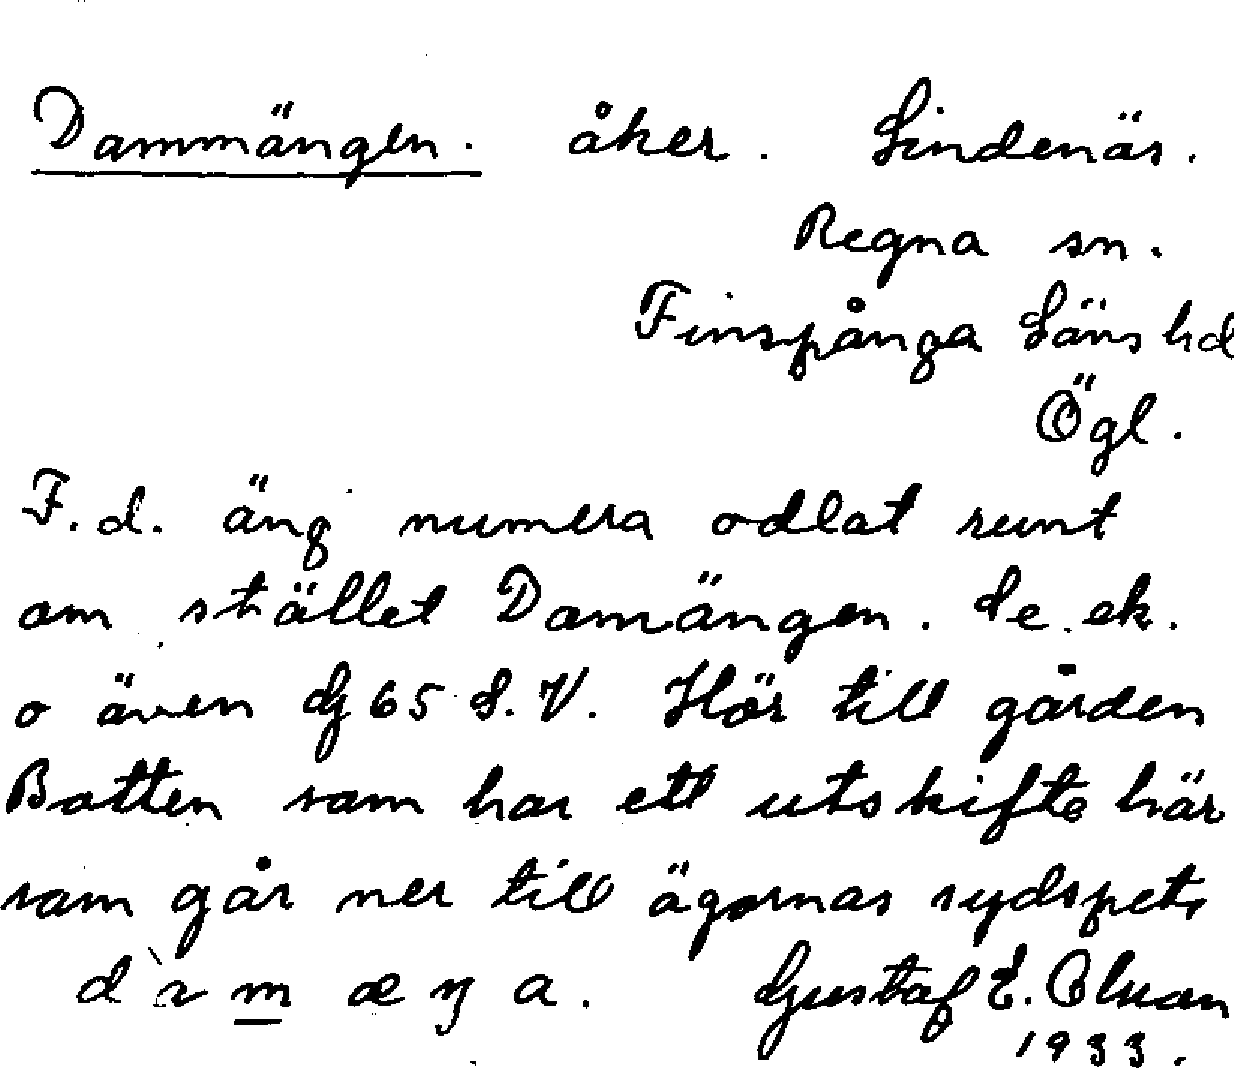 Dammängen. åker. Lindenäs.
Regna sn.
Finspånga Läns hd
Ögl.
F.d. äng numera odlat runt
om stället Damängen. Se ek.
o även Gg 65 S.V. Hör till gården
Botten som har ett utskifte här
som går ner till ägornas sydspets
Gustaf E. Olsson
1933.